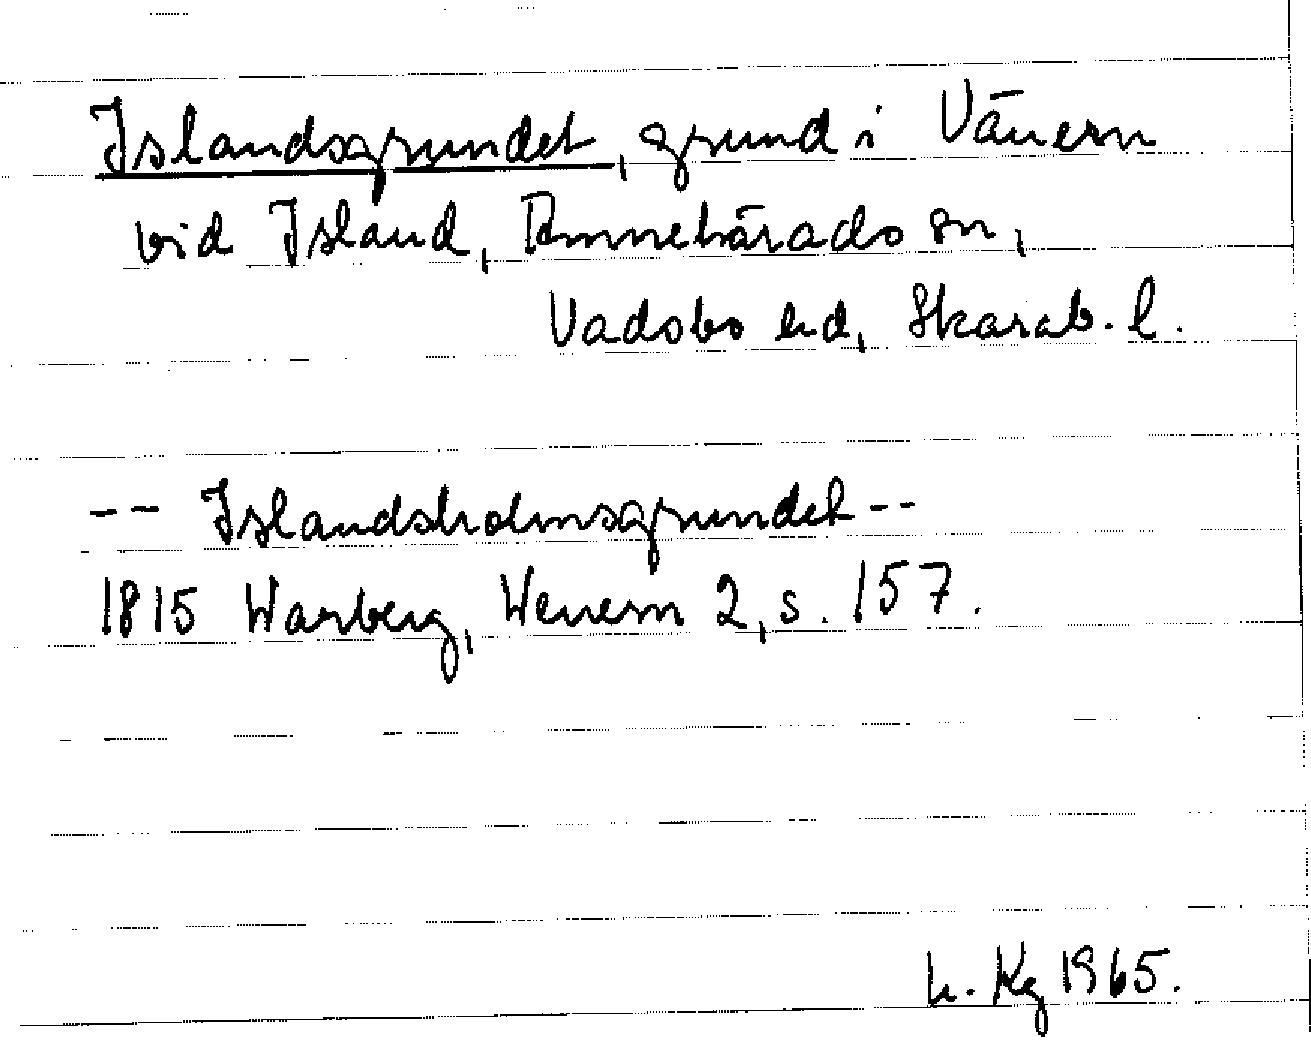 Islandsgrundet, grund i Vänern
vid Island, Amnehärads sn,
Vadsbo hd, Skarab. l.
-- Islandsholmsgrundet --
1815 Warberg, Wenern 2, s. 157.
h. Kg 1965.